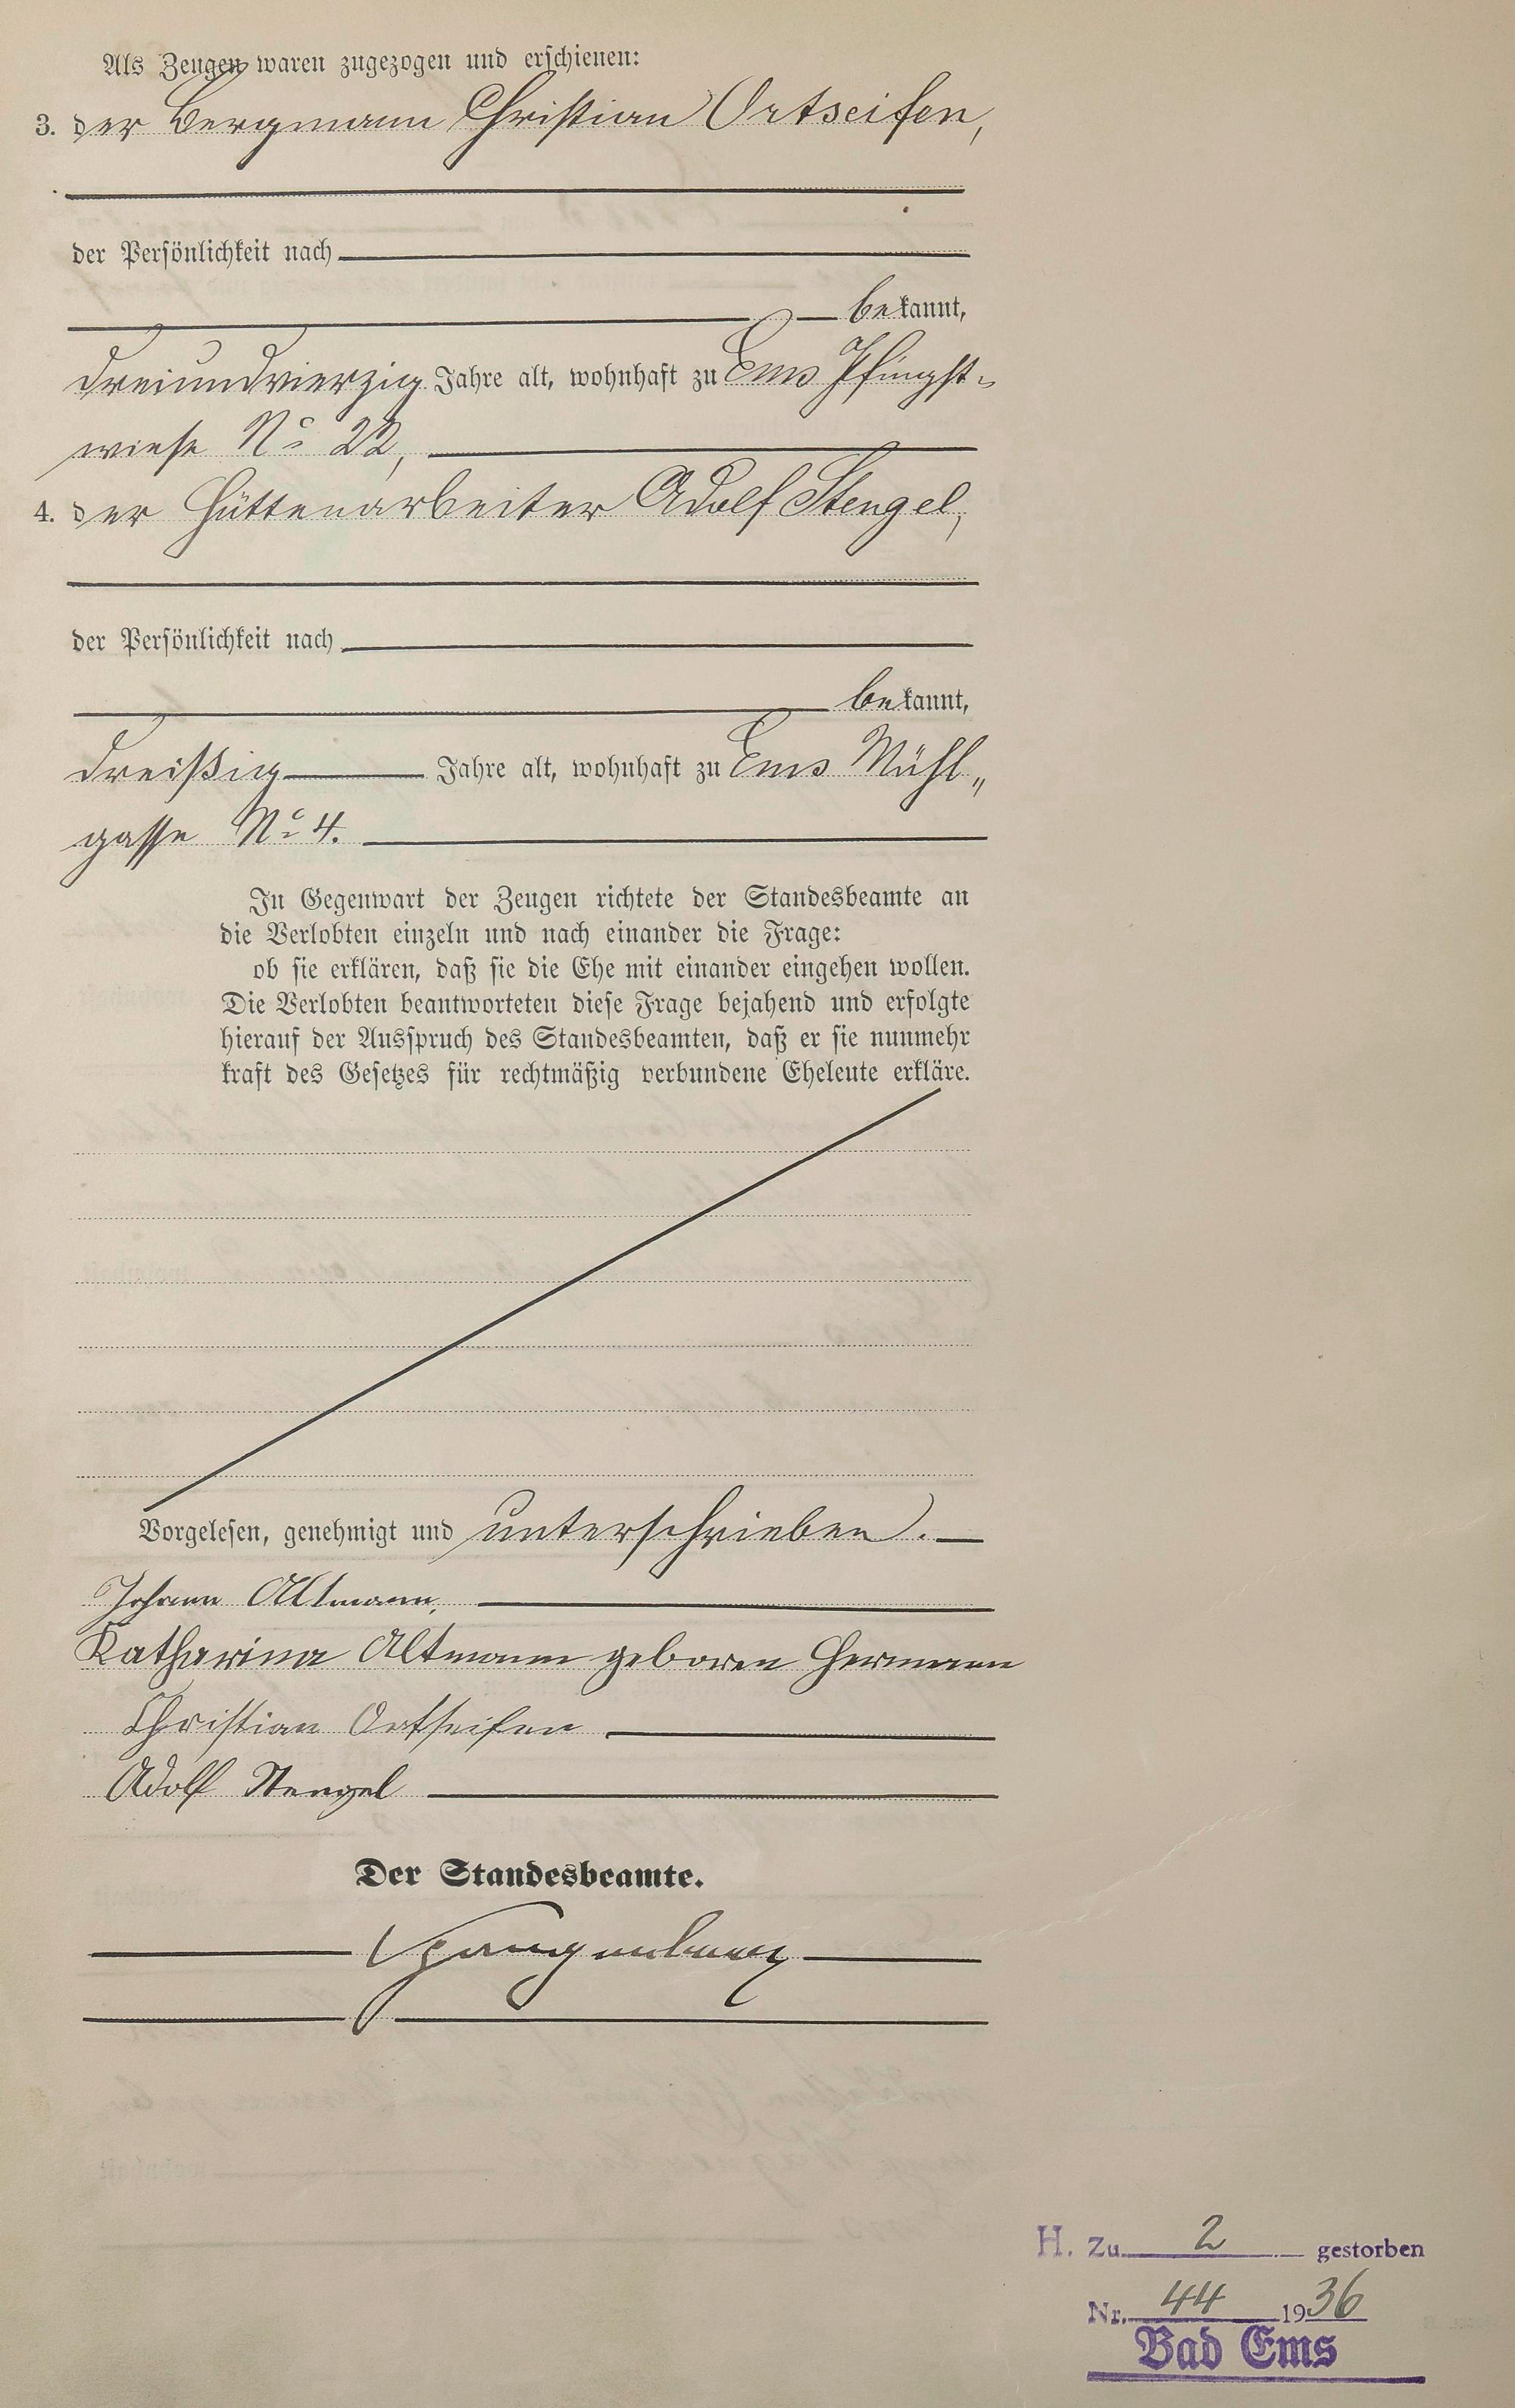 Als Zeugen waren zugezogen und erschienen:
3. der Bergmann Christian Ortseifen,
der Persönlichkeit nach
bekannt,
dreiundvierzig Jahre alt, wohnhaft zu Ems Pfingst-
wiese No 22,
4. der Hüttenarbeiter Adolf Stengel,
der Persönlichkeit nach
bekannt,
dreißig Jahre alt, wohnhaft zu Ems Mühl„
gasse No 4.
In Gegenwart der Zeugen richtete der Standesbeamte an
die Verlobten einzeln und nach einander die Frage:
ob sie erklären, daß sie die Ehe mit einander eingehen wollen.
Die Verlobten beantworteten diese Frage bejahend und erfolgte
hierauf der Ausspruch des Standesbeamten, daß er sie nunmehr
kraft des Gesetzes für rechtmäßig verbundene Eheleute erkläre.
Vorgelesen, genehmigt und unterschrieben.
Johann Altmann,
Katharina Altmann geboren Hermann
Christian Ortseifen
Adolf Stengel
Der Standesbeamte.
Spangenberg
H. Zu 2 gestorben
Nr. 44 1936
Bad Ems